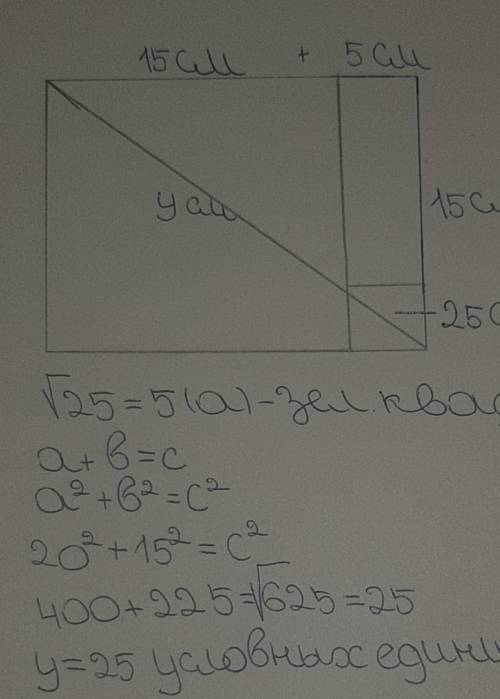 15см + 5см
y см
15с
25с
√25=5(a)-зел.квад
a+b=c
a²+b²=c²
20²+15²=c²
400+225=√625=25
y=25 условных едини